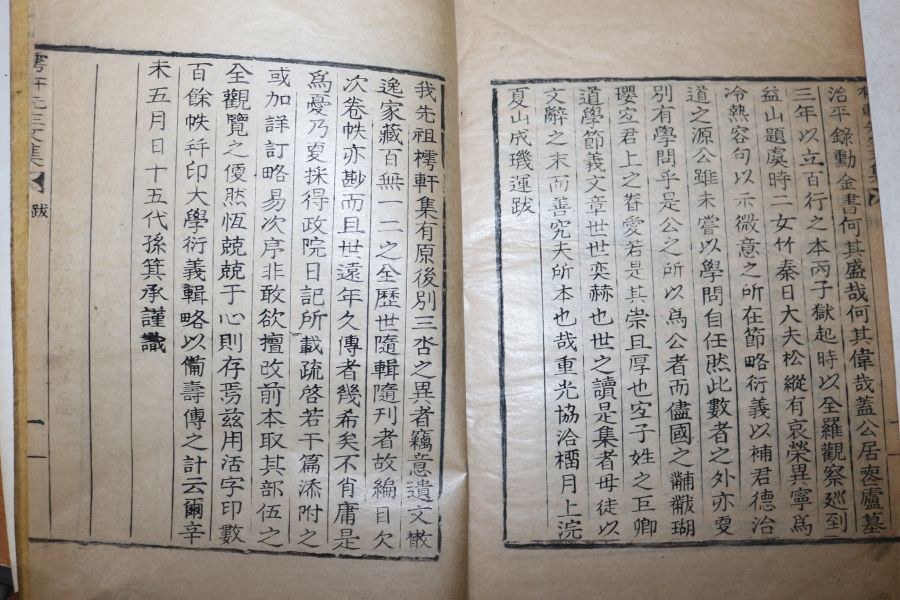 治平錄勳金書何其盛哉何其偉哉蓋公居喪廬墓
三年以立百行之本丙子獄起時以全羅觀察廵到
益山題虞時二女竹秦日大夫松縱有哀榮異寧爲
冷熱容句以示微意之所在節略衍義以補君德治
道之源公雖未嘗以學問自任然此數者之外亦㝎
別有學問乎是公之所以爲公者而儘國之黼黻瑚
璉㝎君上之眷愛若是其崇且厚也㝎子姓之巨卿
道學節義文章世世奕赫也世之讀是集者毋徒以
文辭之末而善究夫所本也哉重光協洽橊月上浣
夏山成璣運跋
我先祖樗軒集有原後別三呇之異者竊意遺文散
逸家藏百無一二之全歷世隨輯隨刊者故編目欠
次卷帙亦尠而且世遠年久傳者幾希矣不肖庸是
爲憂乃夏採得政院日記所載疏啓若干篇添附之
或加詳訂略易次序非敢欲擅改前本取其部伍之
全觀覽之便然恆兢兢于心則存焉兹用活字印數
百餘帙秤印大學衍義輯略以備壽傳之計云爾辛
未五月日十五代孫箕承謹識
跋